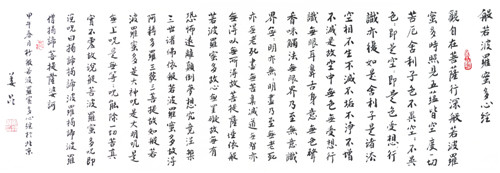 般若波羅蜜多心經
觀自在菩薩行深般若波羅
蜜多時照見五蘊皆空度一切
苦厄舍利子色不異空空不異
色色即是空空即是色受想行
識亦復如是舍利子是諸法
空相不生不滅不垢不淨不增
不減是故空中無色無受想行
識無眼耳鼻舌身意無色聲
香味觸法無眼界乃至無意識
界無無明亦無無明盡乃至無老死
亦無老死盡無苦集滅道無智亦
無得以無所得故菩提薩埵依般
若波羅蜜多故心無罣礙無罣礙故無有
恐怖遠離顛倒夢想究竟涅槃
三世諸佛依般若波羅蜜多故得
阿耨多羅三藐三菩提故知般若
波羅蜜多是大神咒是大明咒是
無上咒是無等等咒能除一切苦真
實不虛故說般若波羅蜜多咒即
說咒曰揭諦揭諦波羅揭諦波羅
僧揭諦菩提薩婆訶
甲午春月 般若波羅蜜多心經於北京